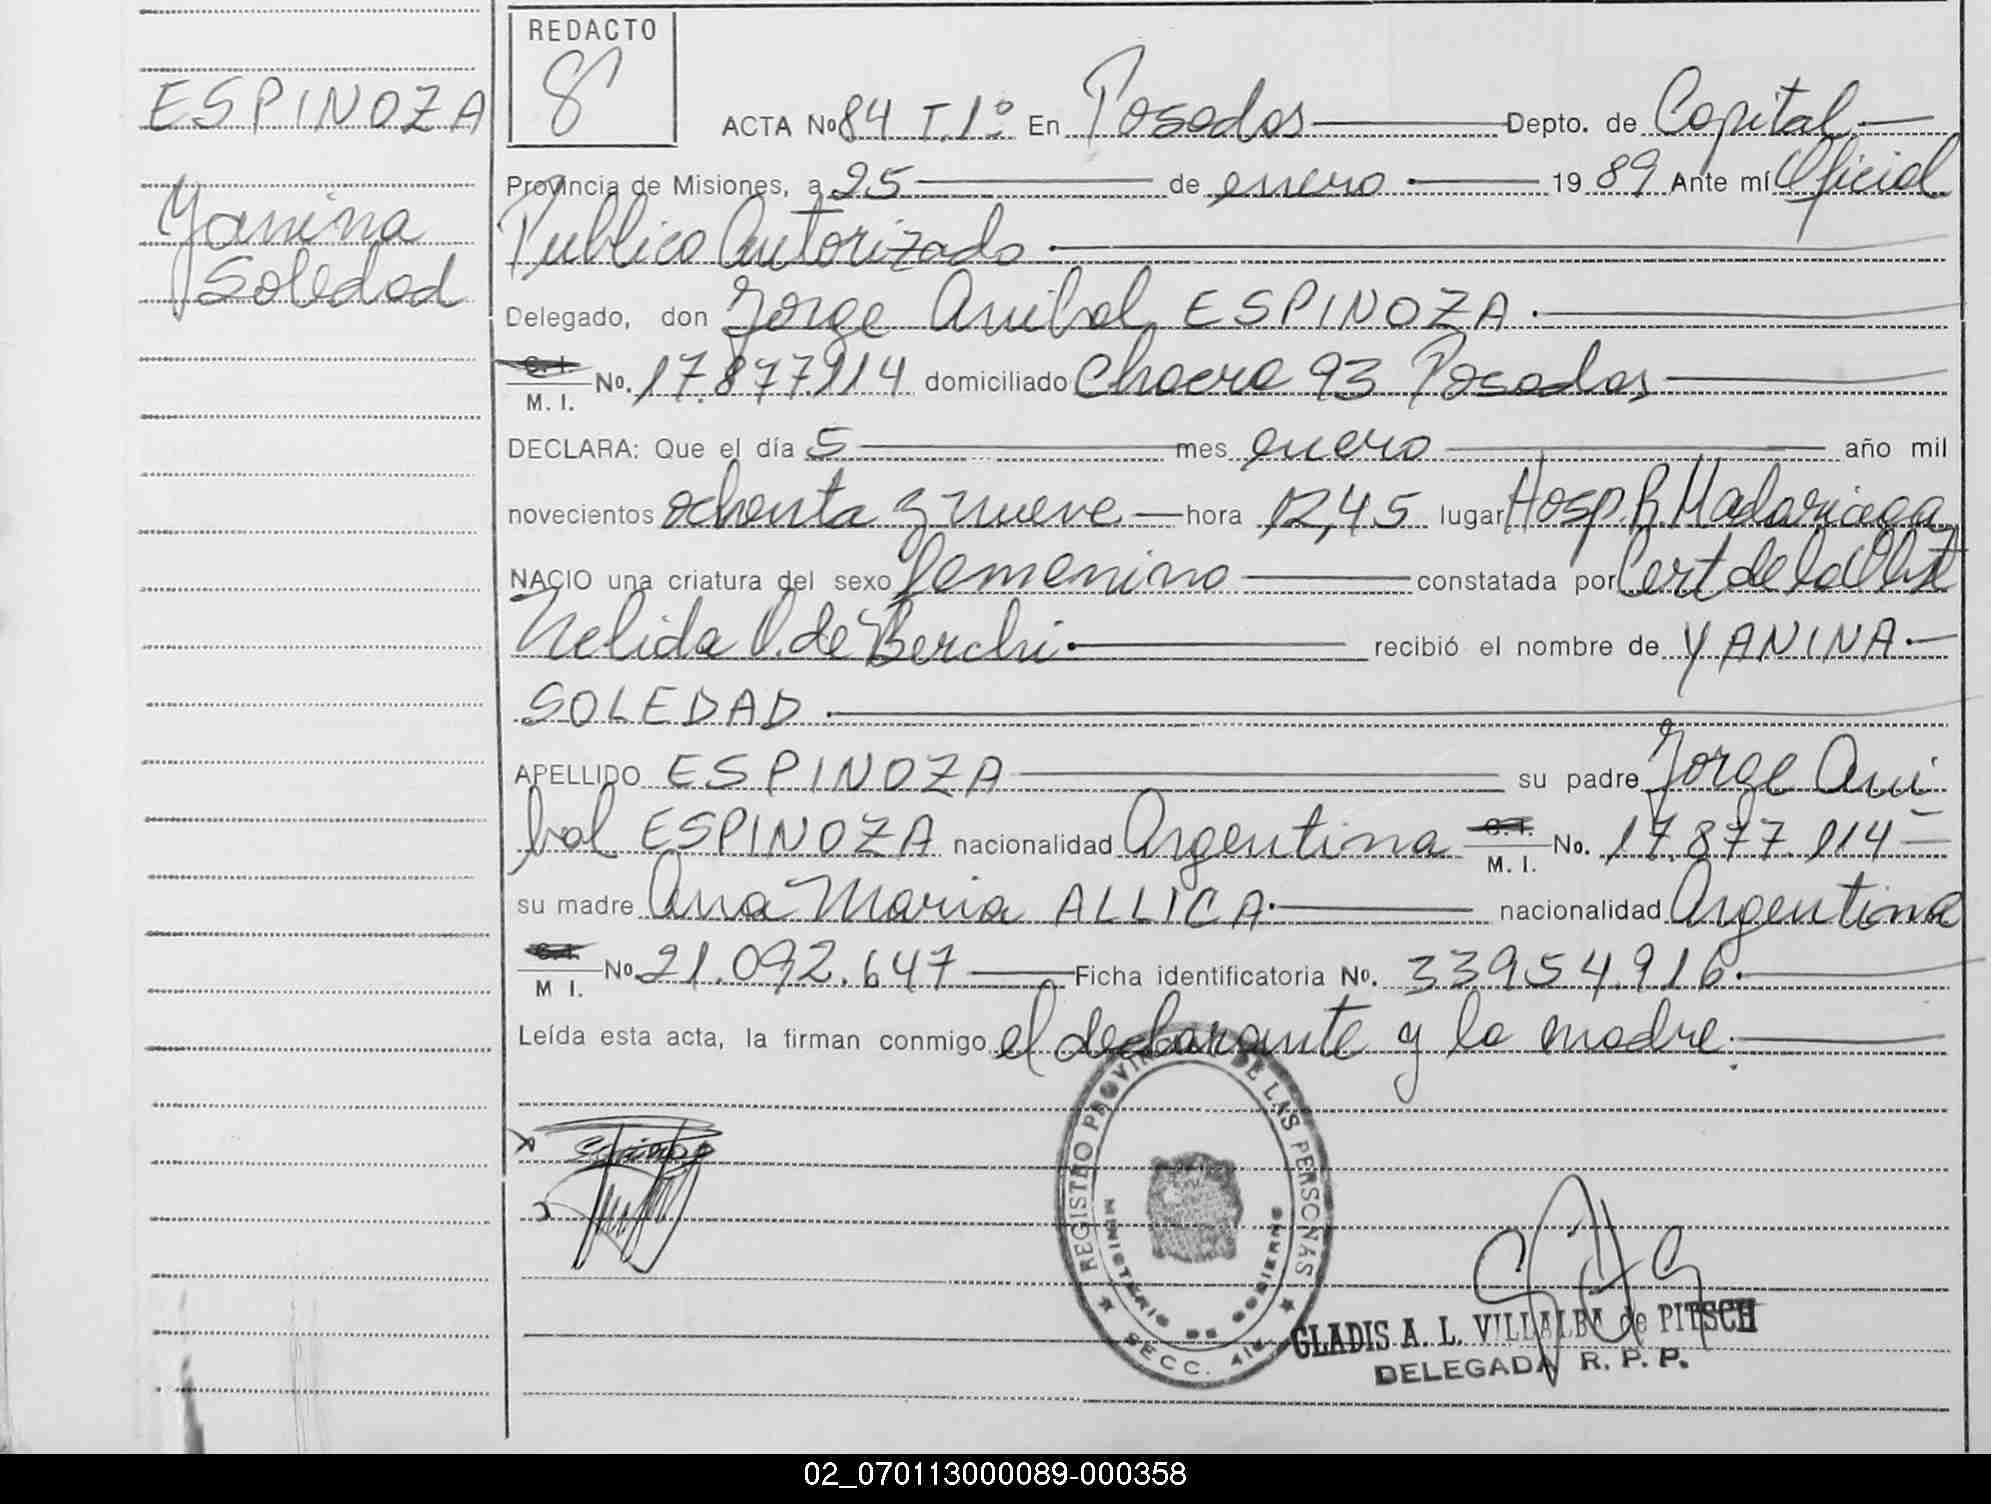 REDACTO
8
ESPINOZA
Yanina
Soledad
ACTA No 84 T.1º En Posadas Depto. de Capital
Provincia de Misiones, a 25 de enero 19 89 Ante mí Oficial
Publico Autorizado
Delegado, don Jorge Anibal ESPINOZA
C. I.
M. I. No. 17.877.114 domiciliado Chacra 93 Posadas
DECLARA: Que el día 5 mes enero año mil
novecientos ochenta y nueve hora 12,45 lugar Hosp. R. Madariaga
NACIO una criatura del sexo femenino constatada por Cert de la Obst
Nelida O. de Berchi recibió el nombre de YANINA
SOLEDAD
APELLIDO ESPINOZA su padre Jorge Ani
bal ESPINOZA nacionalidad Argentina C. I.
M. I. No. 17.877.114
su madre Ana Maria ALLICA nacionalidad Argentina
C. I.
M I. No. 21.092.647 Ficha identificatoria No. 33954.916
Leída esta acta, la firman conmigo el declarante y la madre
REGISTRO PROVINCIAL DE LAS PERSONAS
MINISTERIO DE GOBIERNO
SECC. 4ta.
GLADIS A. L. VILLALBA de PITSCH
DELEGADA R. P. P.
02_070113000089-000358